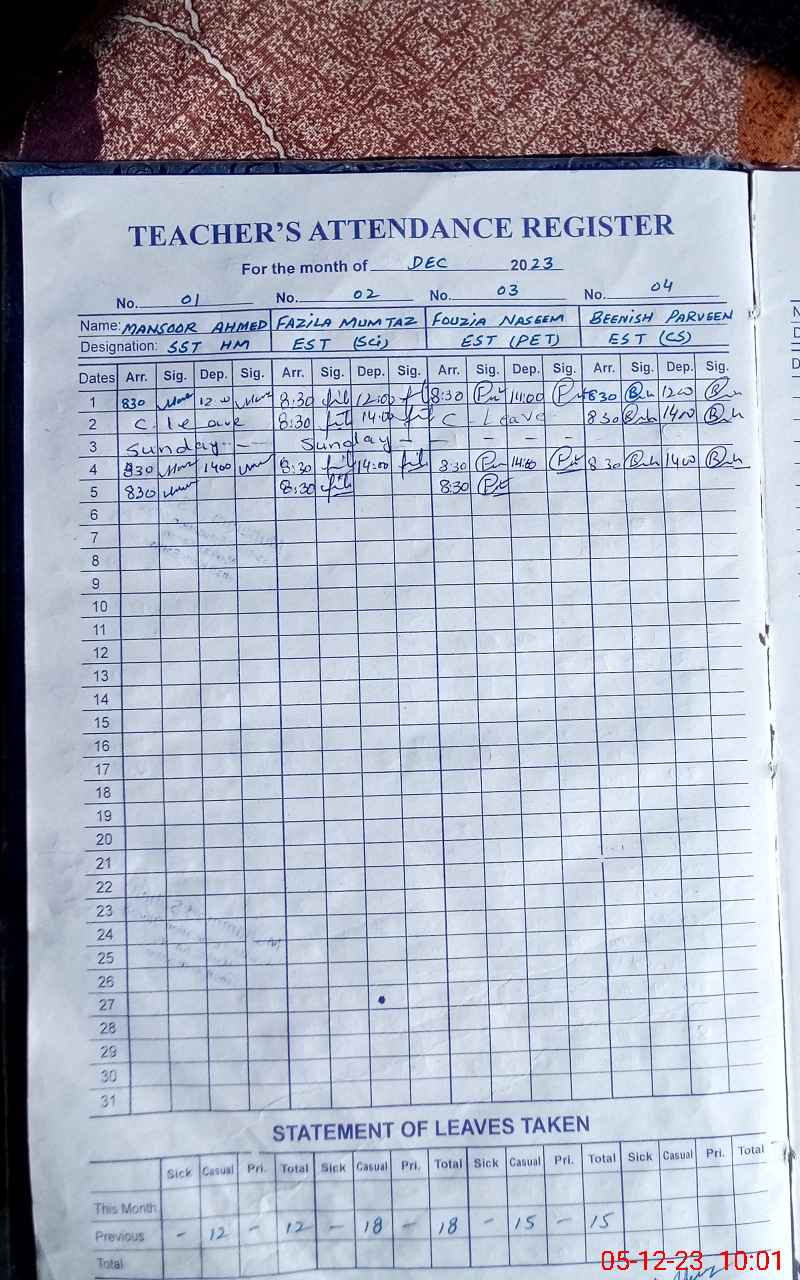 TEACHER'S ATTENDANCE REGISTER
For the month of DEC 2023
No. 01 No. 02 No. 03 No. 04
Name: MANSOOR AHMED FAZILA MUMTAZ FOUZIA NASEEM BEENISH PARVEEN
Designation: SST HM EST (Sci) EST (PET) EST (CS)
Dates Arr. Sig. Dep. Sig. Arr. Sig. Dep. Sig. Arr. Sig. Dep. Sig. Arr. Sig. Dep. Sig.
1 830 1200 8:30 12:00 8:30 14:00 830 1200
2 C leave 8:30 14:00 C Leave 830 1400
3 Sunday - Sunday - - - - - -
4 830 1400 8:30 14:00 8:30 14:00 830 1400
5 830 8:30 8:30
6
7
8
9
10
11
12
13
14
15
16
17
18
19
20
21
22
23
24
25
26
27
28
29
30
31
STATEMENT OF LEAVES TAKEN
Sick Casual Pri. Total Sick Casual Pri. Total Sick Casual Pri. Total Sick Casual Pri. Total
This Month
Previous - 12 - 12 - 18 - 18 - 15 - 15
Total
05-12-23 10:01